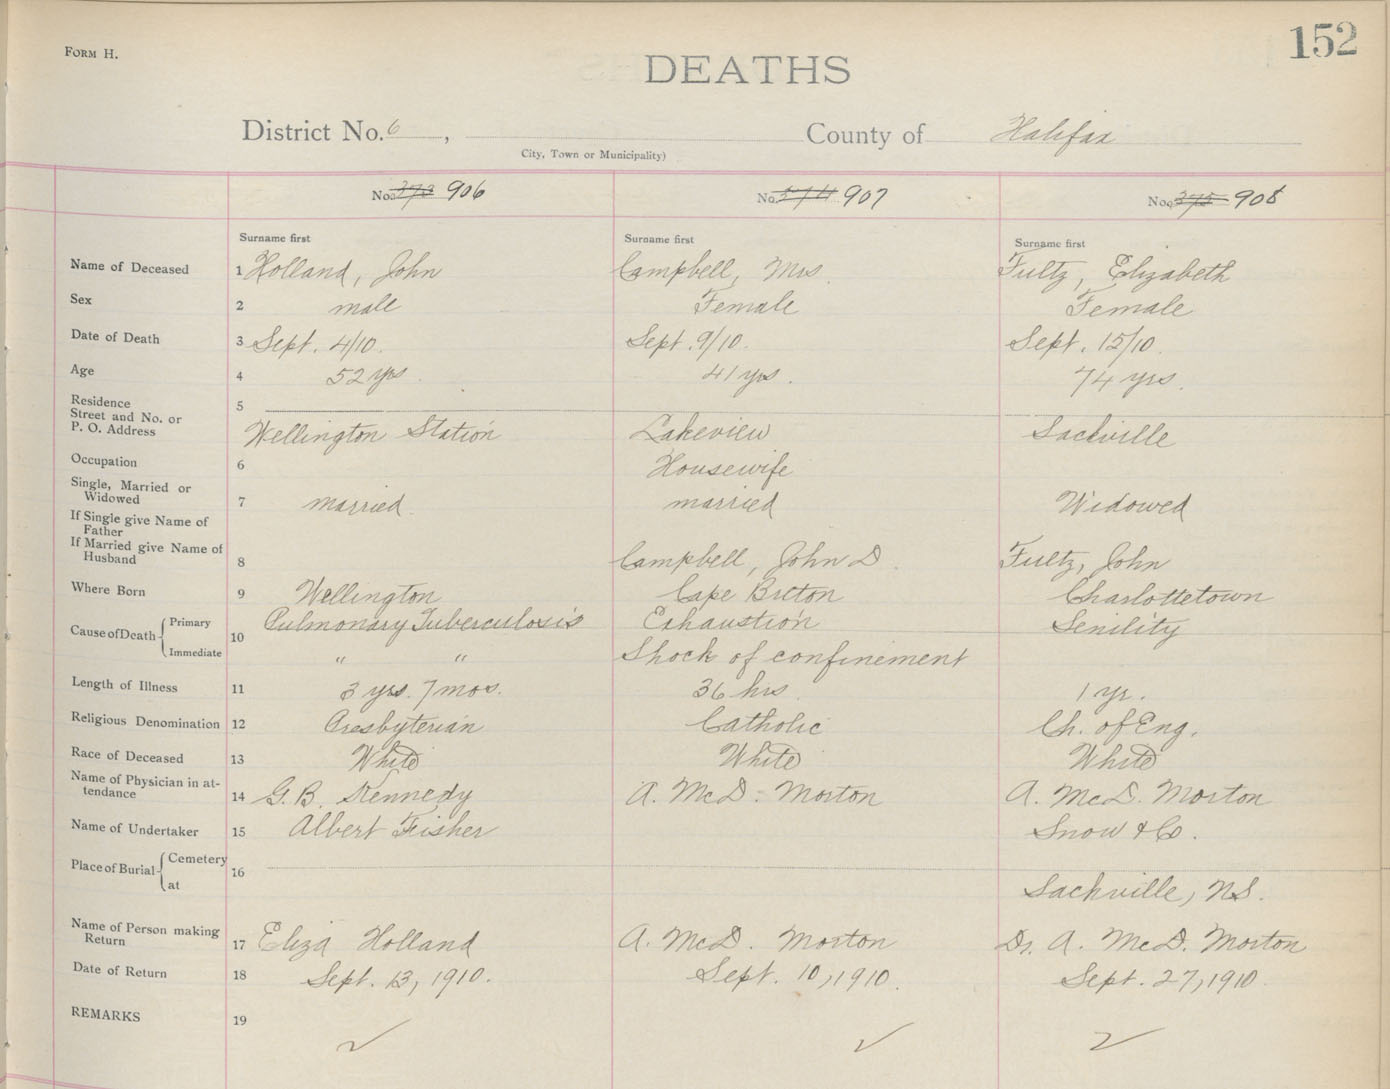 FORM H.
152
DEATHS
District No. 6, County of Halifax
City, Town or Municipality)
No. 373 906 No. 574 907 No. 375 908
Surname first Surname first Surname first
Name of Deceased 1 Holland, John Campbell, Mrs. Fultz, Elizabeth
Sex 2 male Female Female
Date of Death 3 Sept. 4/10. Sept. 9/10. Sept. 15/10.
Age 4 52 yrs. 41 yrs. 74 yrs.
Residence 5
Street and No. or
P. O. Address Wellington Station Lakeview Sackville
Occupation 6 Housewife
Single, Married or
Widowed 7 married. married Widowed
If Single give Name of
Father
If Married give Name of
Husband 8 Campbell, John D. Fultz, John
Where Born 9 Wellington Cape Breton Charlottetown
Cause of Death Primary 10 Pulmonary Tuberculosis Exhaustion Senility
Immediate " " Shock of confinement
Length of Illness 11 3 yrs. 7 mos. 36 hrs. 1 yr.
Religious Denomination 12 Presbyterian Catholic Ch. of Eng.
Race of Deceased 13 White White White
Name of Physician in at-
tendance 14 G. B. Kennedy A. McD. Morton A. McD. Morton
Name of Undertaker 15 Albert Fisher Snow & Co.
Place of Burial Cemetery 16
at Sackville, N.S.
Name of Person making
Return 17 Eliza Holland A. McD. Morton Dr. A. McD. Morton
Date of Return 18 Sept. 13, 1910. Sept. 10, 1910. Sept. 27, 1910.
REMARKS 19